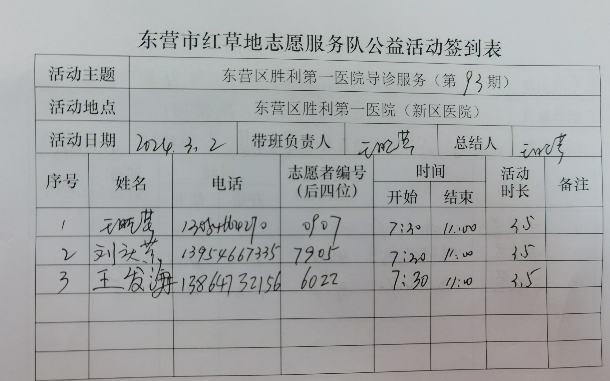 东营市红草地志愿服务队公益活动签到表
活动主题 东营区胜利第一医院导诊服务（第93期）
活动地点 东营区胜利第一医院（新区医院）
活动日期 2024.3.2 带班负责人 总结人
序号 姓名 电话 志愿者编号（后四位） 时间 开始 结束 活动时长 备注
1 0907 7:30 11:00 3.5
2 刘 13954667335 7905 7:30 11:00 3.5
3 王发海 13864732156 6022 7:30 11:00 3.5